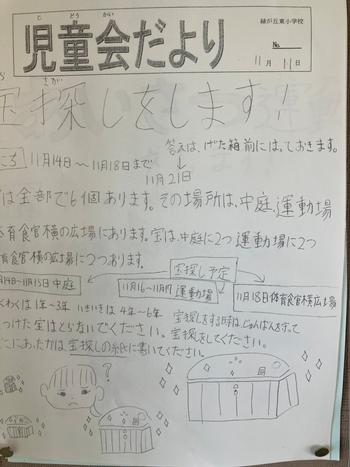 緑が丘東小学校
じ どう かい
児童会だより
No.
11月 11日
さが
宝探しをします!
答えは、げた箱前にはっておきます。
ころ 11月14日〜11月18日まで
11月21日
は全部で6個あります。その場所は、中庭、運動場
体育食官横の広場にあります。宝は、中庭に2つ 運動場に2つ
育食官横の広場に2つあります。
宝探し予定
月14日〜11月15日 中庭
11月16〜11月17 運動場
11月18日 体育食官横広場
くわくは1年〜3年 いきいきは4年〜6年 宝探しをする時は、じゅんばんを守って
つけた宝はとらないでください。宝探しをしてください。
こにあったかは、宝探しの紙に書いてください。
?